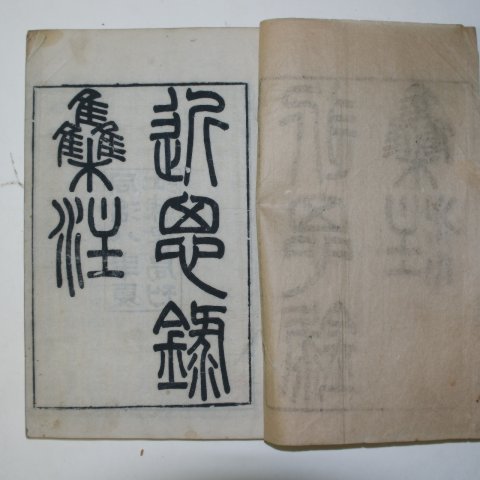 近思錄
集注